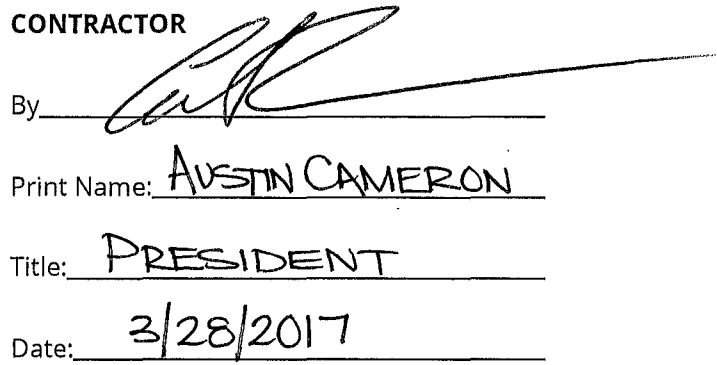 CONTRACTOR
By
Print Name: AUSTIN CAMERON
Title: PRESIDENT
Date: 3/28/2017